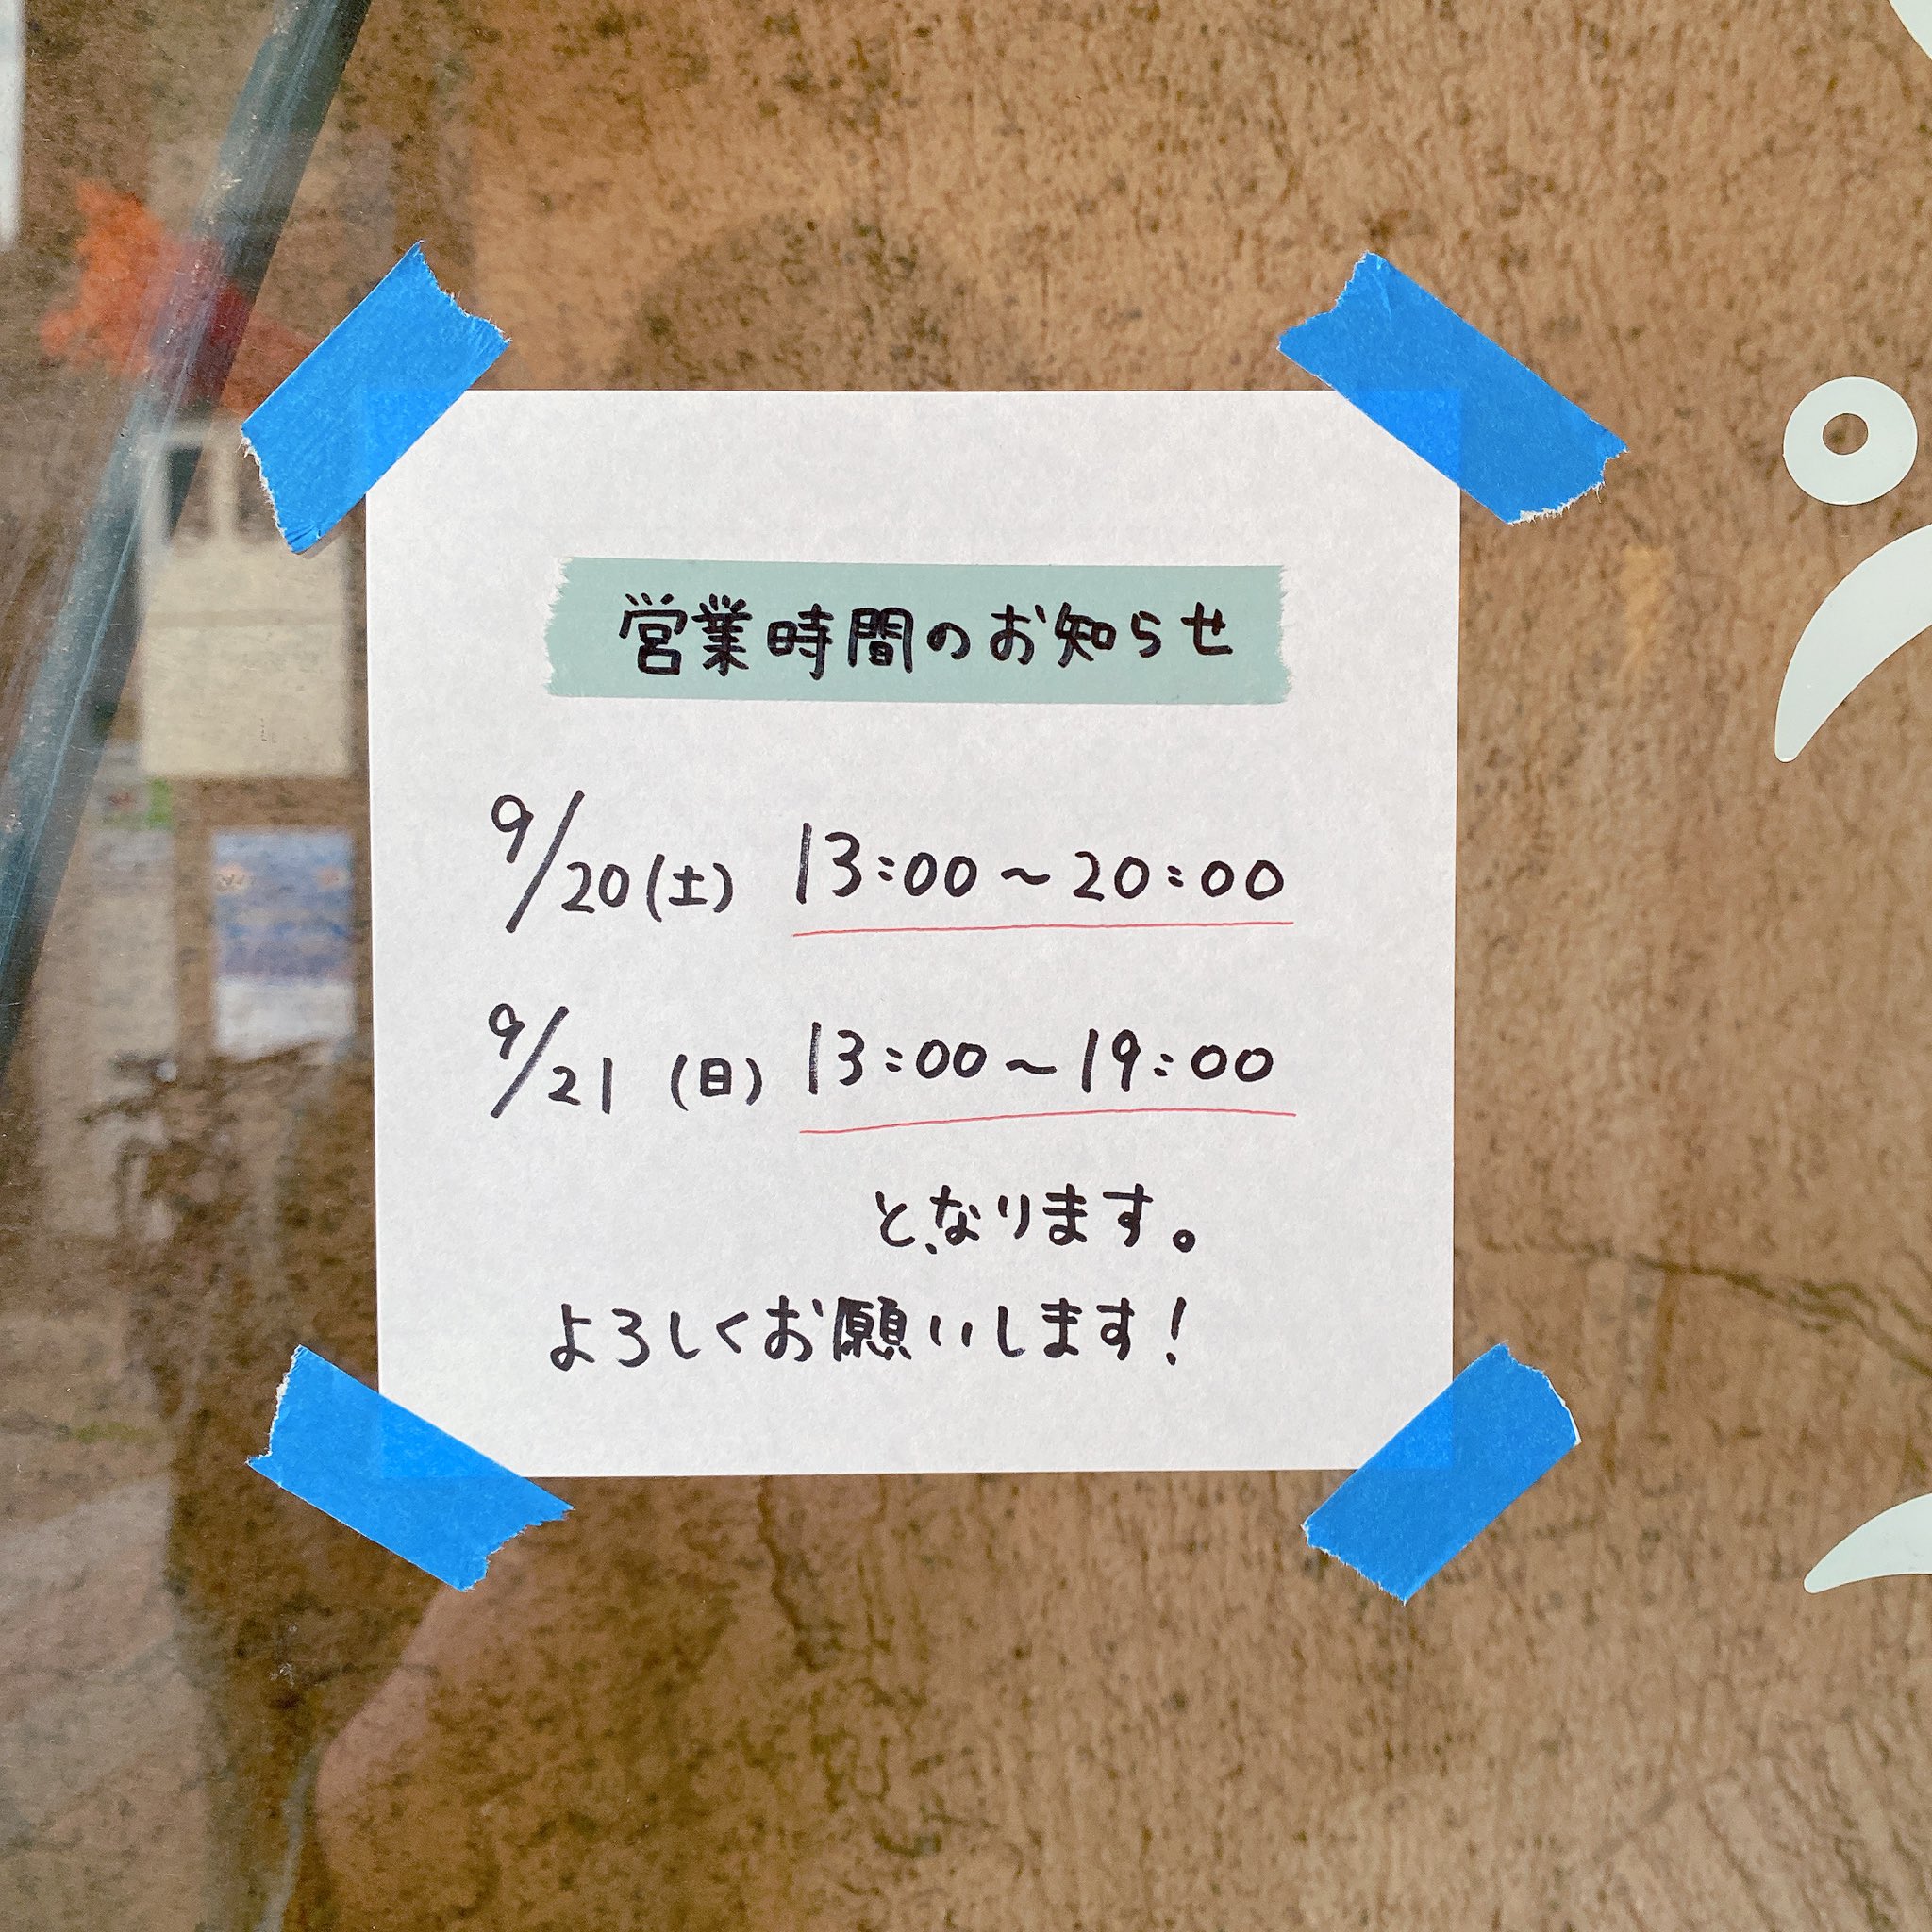 営業時間のお知らせ
9/20(土) 13:00~20:00
9/21(日) 13:00~19:00
となります。
よろしくお願いします!